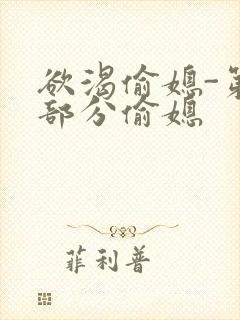 欲渴偷媳-第
部分偷媳
菲利普